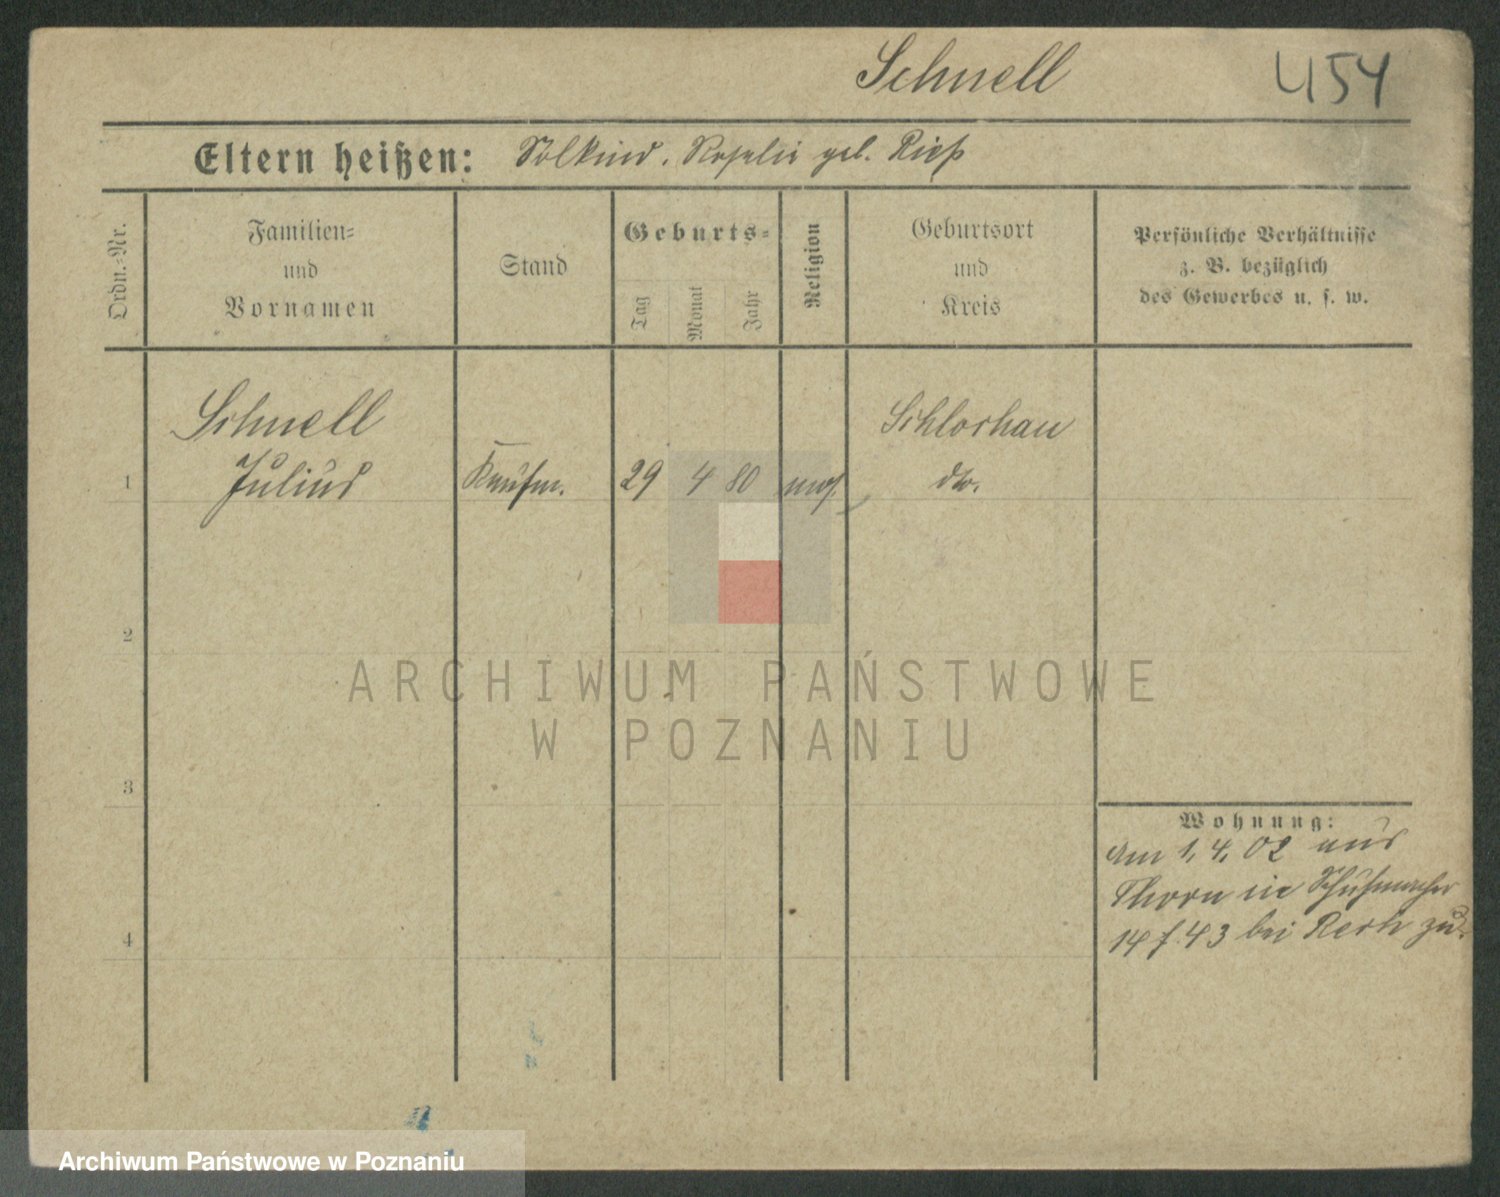 Schnell
454
Eltern heißen: Rosalie geb. Rieß
Ordn.-Nr.
Familien-
und
Vornamen
Stand
Geburts-
Tag
Monat
Jahr
Religion
Geburtsort
und
Kreis
Persönliche Verhältnisse
z. B. bezüglich
des Gewerbes u. s. w.
Schnell
Schlochau
1 Julius Kaufm. 29 4 80 mos. do.
2
ARCHIWUM PAŃSTWOWE
W POZNANIU
3
Wohnung:
Am 1. 4. 02 aus
Thorn in Schuhmacher
14 f. 43 bei zu.
4
Archiwum Państwowe w Poznaniu